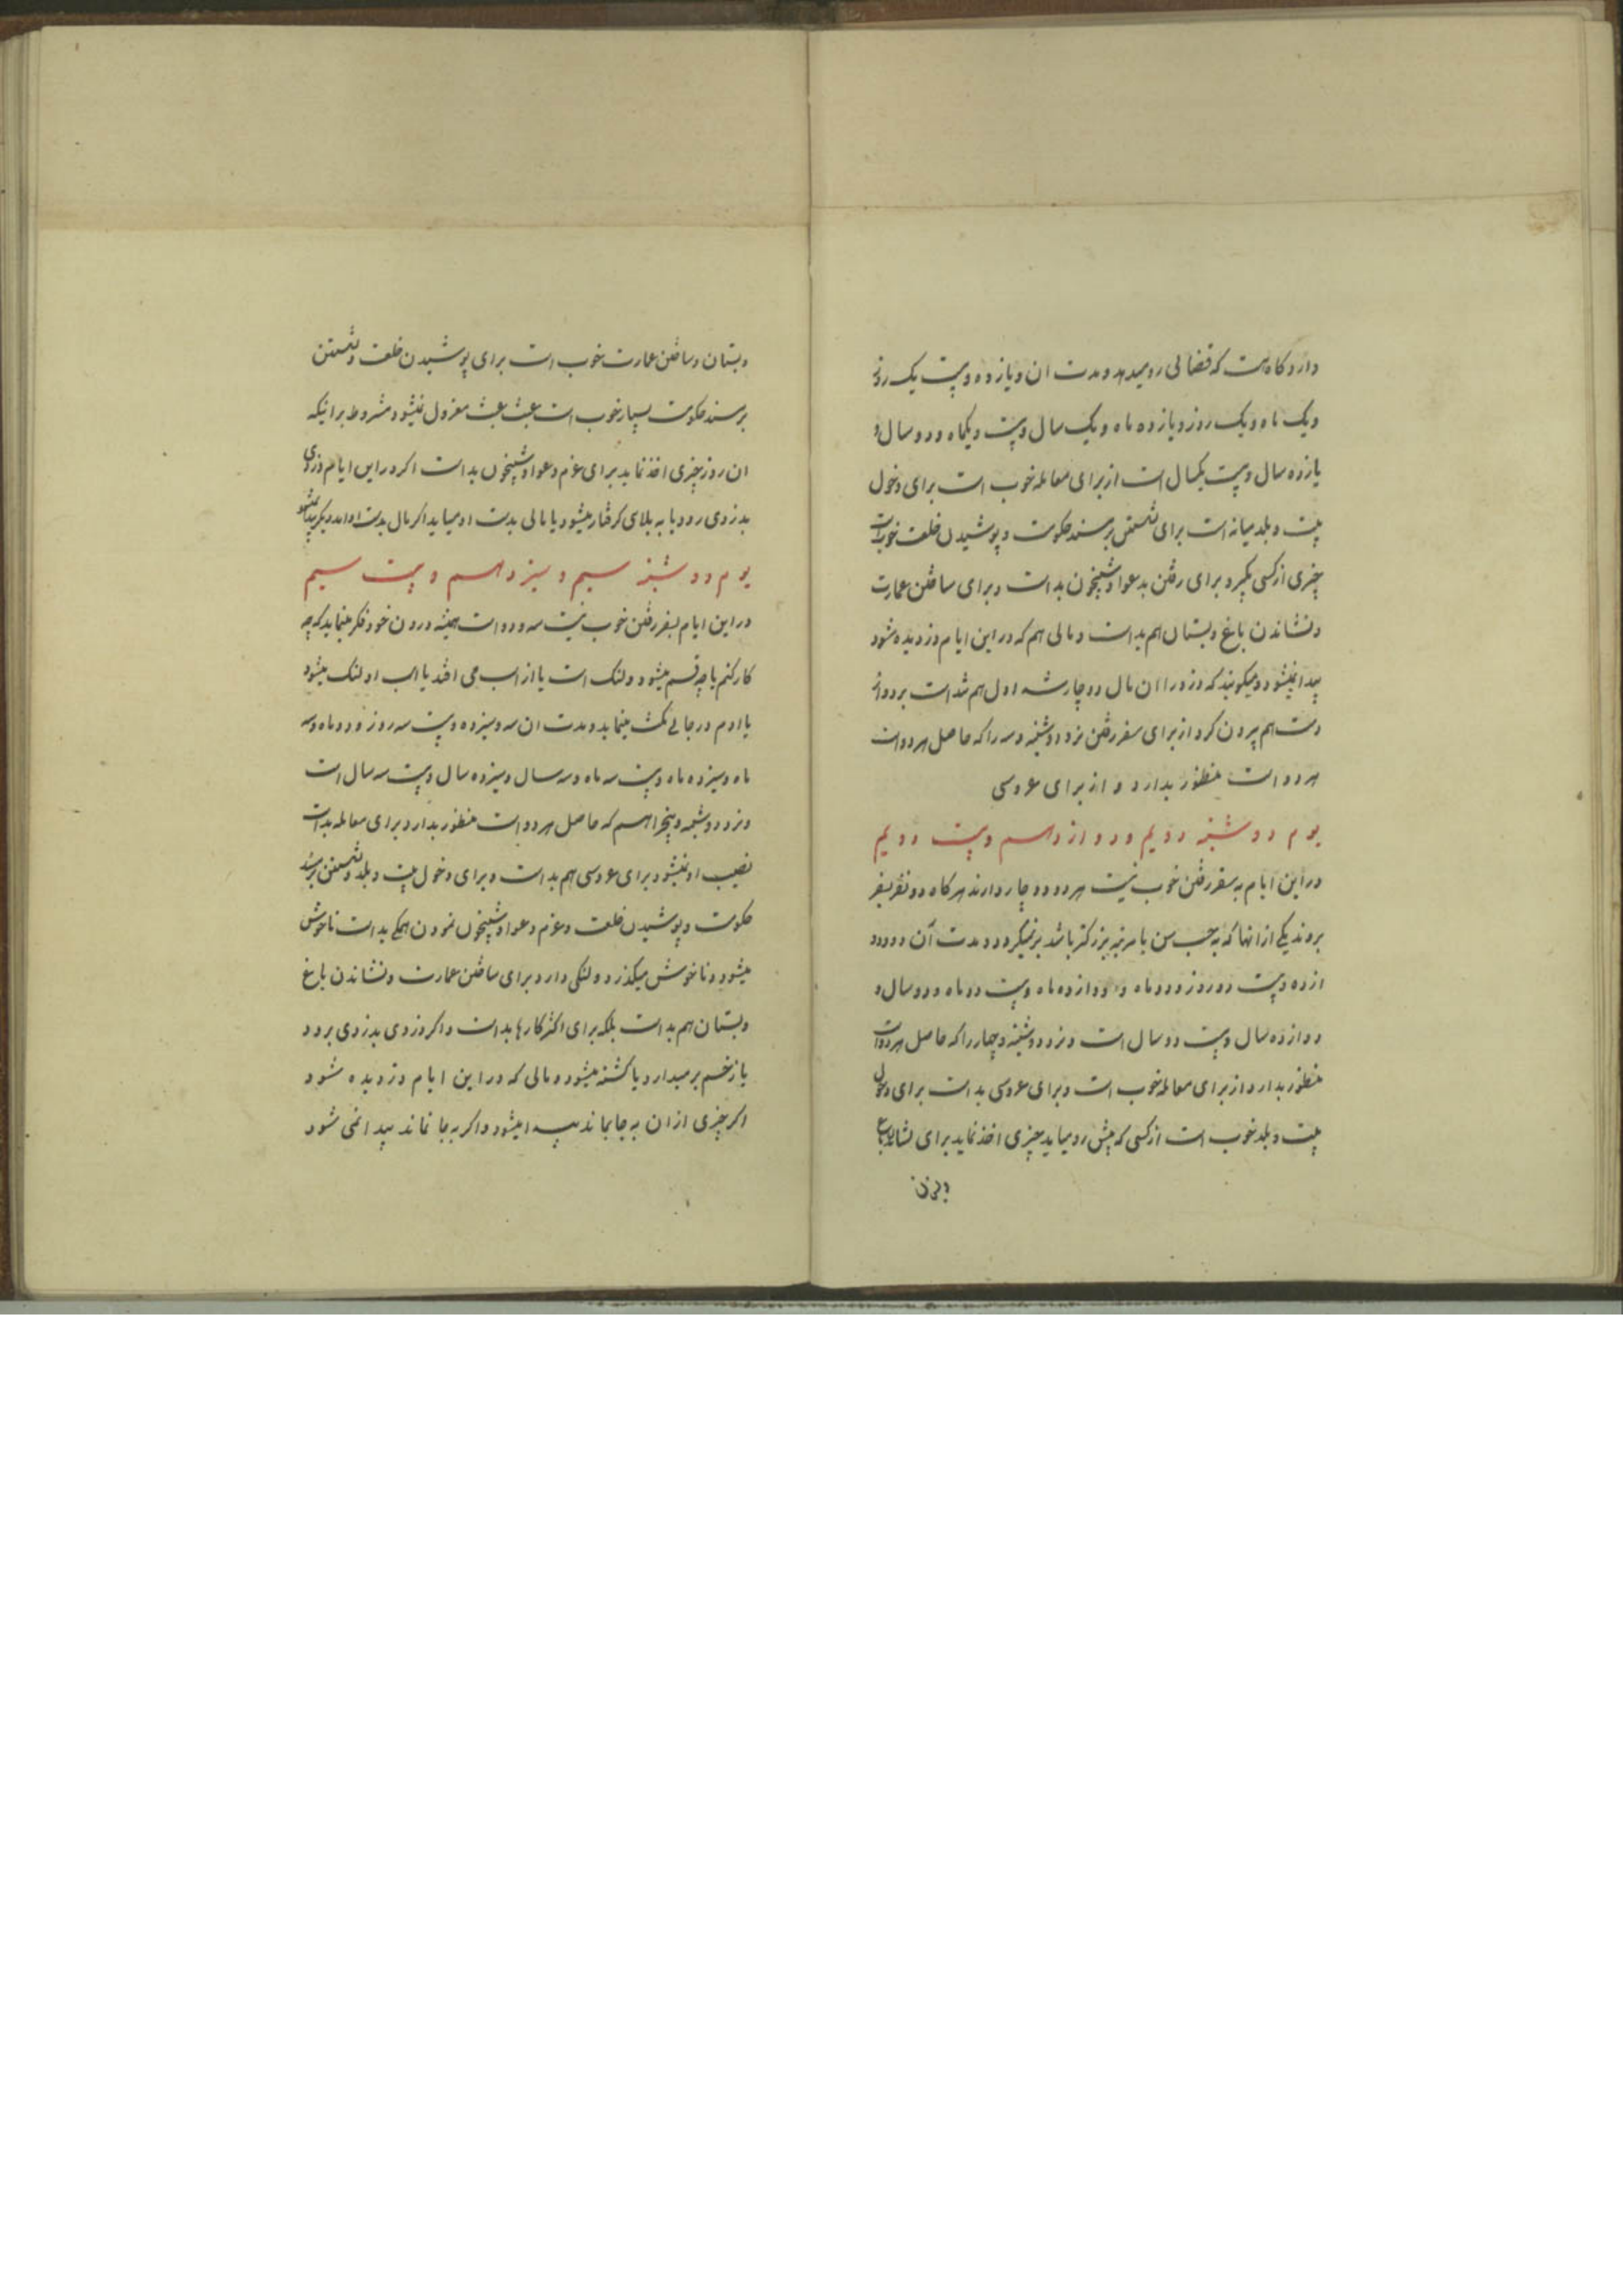 دارد کاه هست که قضائی رو میدهد و مدت ان و یازده و بیست یک روز
و یک ماه و یک روز و یازده ماه و یک سال و بیست و یکماه و دو سال و
یازده سال و بیست یکسال است از برای معامله خوب است برای دخول
بیت و بلد میانه است برای نشستن بر مسند حکومت و پوشیدن خلعت خوبست
چیزی از کسی بگیرد برای رفتن بدعوا و شبیخون بد است و برای ساختن عمارت
و نشاندن باغ و بستان هم بد است و مالی هم که در این ایام دزدیده شود
پیدا نمیشود و میکویند که دزد را ان مال دو چار شده اول هم شد است بر دو از
دست هم بیرون کرد از برای سفر رفتن نرد دوشنبه و سه را که حاصل هر دو است
هر دو است منظور بدارد و از برای عروسی
یوم دوشنبه دویم و دوازدهم و بیست دویم
در این ایام به سفر رفتن خوب نیست هر دو دو چار دارند هر کاه دو نفر بسفر
بروند یکی از انها که به حسب سن یا مرتبه بزرکتر باشد بر نمیکردد و مدت آن دو و دو
ازده و بیست دو روز و دو ماه و دوازده ماه و بیست دو ماه و دو سال و
دوازده سال و بیست دو سال است و نرد دوشنبه و چهار را که حاصل هر دو است
منظور بدارد از برای معامله خوب است و برای عروسی بد است برای دخول
بیت و بلد خوب است از کسی که پیش رو میاید چیزی اخذ نماید برای نشاندن باغ
و بستان و ساختن عمارت خوب است برای پوشیدن خلعت و نشستن
بر مسند حکومت بسیار خوب است عبث عبث معزول نمیشود مشروط بر اینکه
ان روز چیزی اخذ نماید برای عزم دعوا و شبیخون بد است اکر در این ایام دزدی
بدزدی رود یا به بلای کرفتار میشود یا مالی بدست او میاید اکر مال بدست او امد دیکر پیدا نمیشود
یوم دوشنبه سیم و سیزدهم و بیست سیم
در این ایام بسفر رفتن خوب نیست سه و دو است همیشه درون خود فکر مینماید که چه
کار کنم یا چه قسم میشود و لنک است یا از اسب می افتد یا اسب او لنک میشود
یا ادم در جائی مکث مینماید و مدت ان سه و سیزده و بیست سه روز و دو ماه و سه
ماه و سیزده ماه و بیست سه ماه و سه سال و سیزده سال و بیست سه سال است
و نرد دوشنبه و پنج را هم که حاصل هر دو است منظور بدارد برای معامله بد است
نصیب او نمیشود برای عروسی هم بد است و برای دخول بیت و بلد و نشستن بر مسند
حکومت و پوشیدن خلعت و عزم دعوا و شبیخون نمودن همکی بد است ناخوش
میشود و ناخوش میکذرد و لنکی دارد برای ساختن عمارت و نشاندن باغ
و بستان هم بد است بلکه برای اکثر کارها بد است و اکر دزدی بدزدی برود
یا زخم بر میدارد یا کشته میشود و مالی که در این ایام دزدیده شود
اکر چیزی از ان به جا بماند پیدا میشود و اکر به جا نماند پیدا نمی شود